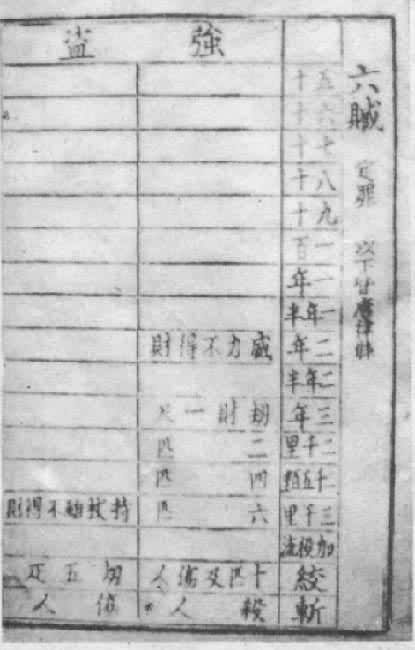 六贓 定罪 以下皆唐律
強盜
五十
六十
七十
八十
九十
一百
一年
一年半
二年 威力不得財
二年半
三年 刼財一尺
二千里 二匹
千五 四匹
三千里 六匹 持杖雖不得財
加役流
絞 十匹及傷人 刼五疋
斬 殺人 傷人